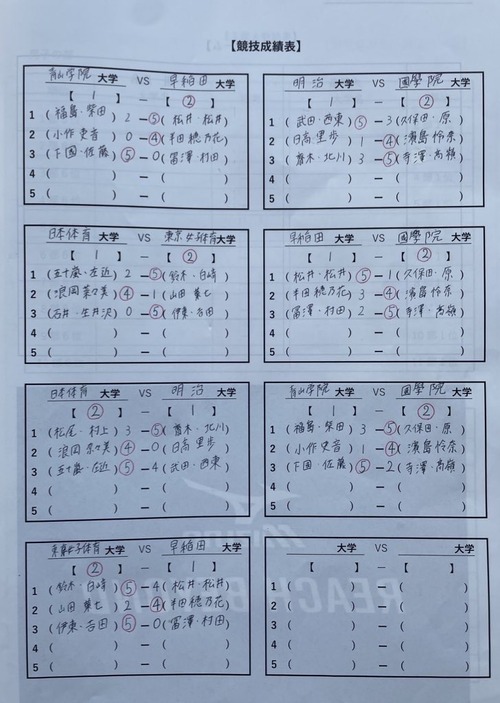 【競技成績表】
青山学院 大学 VS 早稲田 大学
【 1 】 － 【 ② 】
1 ( 福島・柴田 ) 2 － ⑤ ( 松井・松井 )
2 ( 小作吏音 ) 0 － ④ ( 半田穂乃花 )
3 ( 下園・佐藤 ) ⑤ － 0 ( 冨澤・村田 )
4 ( ) － ( )
5 ( ) － ( )
明治 大学 VS 國學院 大学
【 1 】 － 【 ② 】
1 ( 武田・西東 ) ⑤ － 3 ( 久保田・原 )
2 ( 日高里歩 ) 1 － ④ ( 濱島怜奈 )
3 ( 舊木・北川 ) 3 － ⑤ ( 寺澤・高嶺 )
4 ( ) － ( )
5 ( ) － ( )
日本体育 大学 VS 東京女子体育 大学
【 1 】 － 【 ② 】
1 ( 五十嵐・左近 ) 2 － ⑤ ( 鈴木・日崎 )
2 ( 浪岡菜々美 ) ④ － 1 ( 山田 )
3 ( 石井・生井沢 ) 0 － ⑤ ( 伊東・吉田 )
4 ( ) － ( )
5 ( ) － ( )
早稲田 大学 VS 國學院 大学
【 1 】 － 【 ② 】
1 ( 松井・松井 ) ⑤ － 1 ( 久保田・原 )
2 ( 半田穂乃花 ) 3 － ④ ( 濱島怜奈 )
3 ( 冨澤・村田 ) 2 － ⑤ ( 寺澤・高嶺 )
4 ( ) － ( )
5 ( ) － ( )
日本体育 大学 VS 明治 大学
【 ② 】 － 【 1 】
1 ( 松尾・村上 ) 3 － ⑤ ( 舊木・北川 )
2 ( 浪岡奈々美 ) ④ － 0 ( 日高里歩 )
3 ( 五十嵐・左近 ) ⑤ － 4 ( 武田・西東 )
4 ( ) － ( )
5 ( ) － ( )
青山学院 大学 VS 國學院 大学
【 1 】 － 【 ② 】
1 ( 福島・柴田 ) 3 － ⑤ ( 久保田・原 )
2 ( 小作吏音 ) 1 － ④ ( 濱島怜奈 )
3 ( 下園・佐藤 ) ⑤ － 2 ( 寺澤・高嶺 )
4 ( ) － ( )
5 ( ) － ( )
東京女子体育 大学 VS 早稲田 大学
【 ② 】 － 【 1 】
1 ( 鈴木・日崎 ) ⑤ － 4 ( 松井・松井 )
2 ( 山田 ) 2 － ④ ( 半田穂乃花 )
3 ( 伊東・吉田 ) ⑤ － 0 ( 冨澤・村田 )
4 ( ) － ( )
5 ( ) － ( )
大学 VS 大学
【 】 － 【 】
1 ( ) － ( )
2 ( ) － ( )
3 ( ) － ( )
4 ( ) － ( )
5 ( ) － ( )